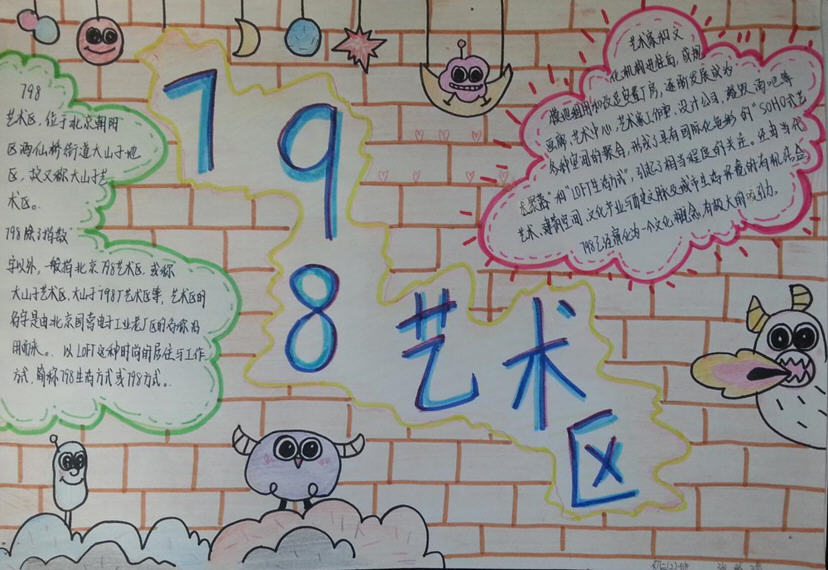 798
艺术区
798
艺术区,位于北京朝阳
区酒仙桥街道大山子地
区,故又称大山子艺
术区。
798除了指数
字以外,一般指北京798艺术区,或称
大山子艺术区,大山子798厂艺术区等,艺术区的
名字是由北京国营电子工业老厂区的名称沿
用而来。以LOFT这种时尚的居住与工作
方式,简称798生活方式或798方式。
艺术家和文
化机构进驻后,成规
模地租用和改造空置厂房,逐渐发展成为
画廊,艺术中心,艺术家工作室,设计公司,餐饮,酒吧等
各种空间的聚合,形成了具有国际化色彩的"SOHO式艺
术聚落"和"LOFT生活方式",引起了相当程度的关注。经由当代
艺术,建筑空间,文化产业与历史文脉及城市生活环境的有机结合
798已经演化为一个文化概念,有较大的吸引力。